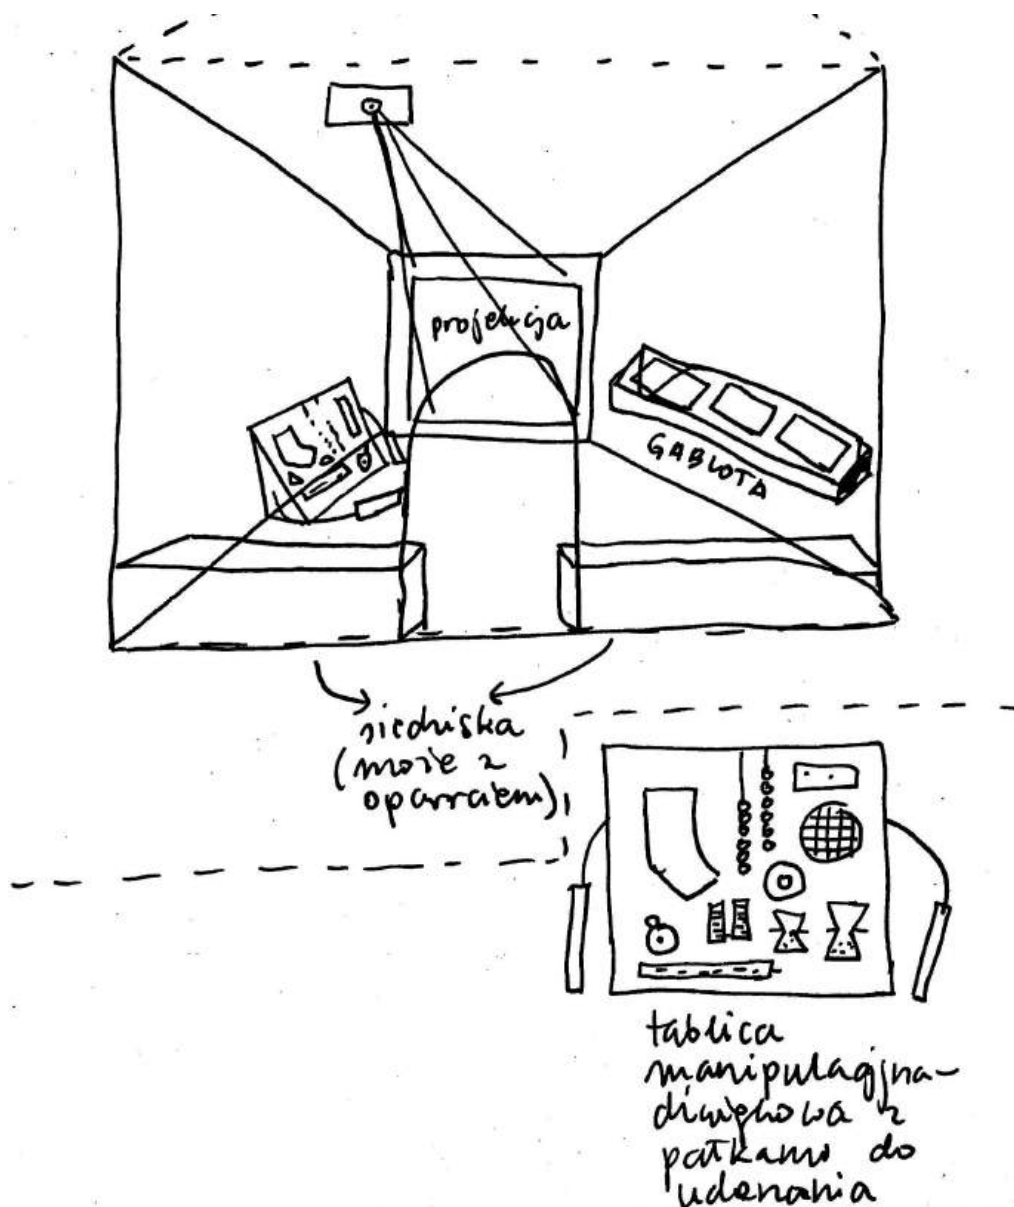 projekcja
GABLOTA
siedziska
(może z
oparciem)
tablica
manipulacyjna-
dźwiękowa z
pałkami do
uderzania